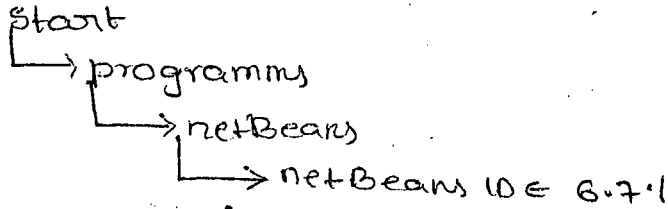 Start
programms
netBeans
netBeans IDE 6.7.1